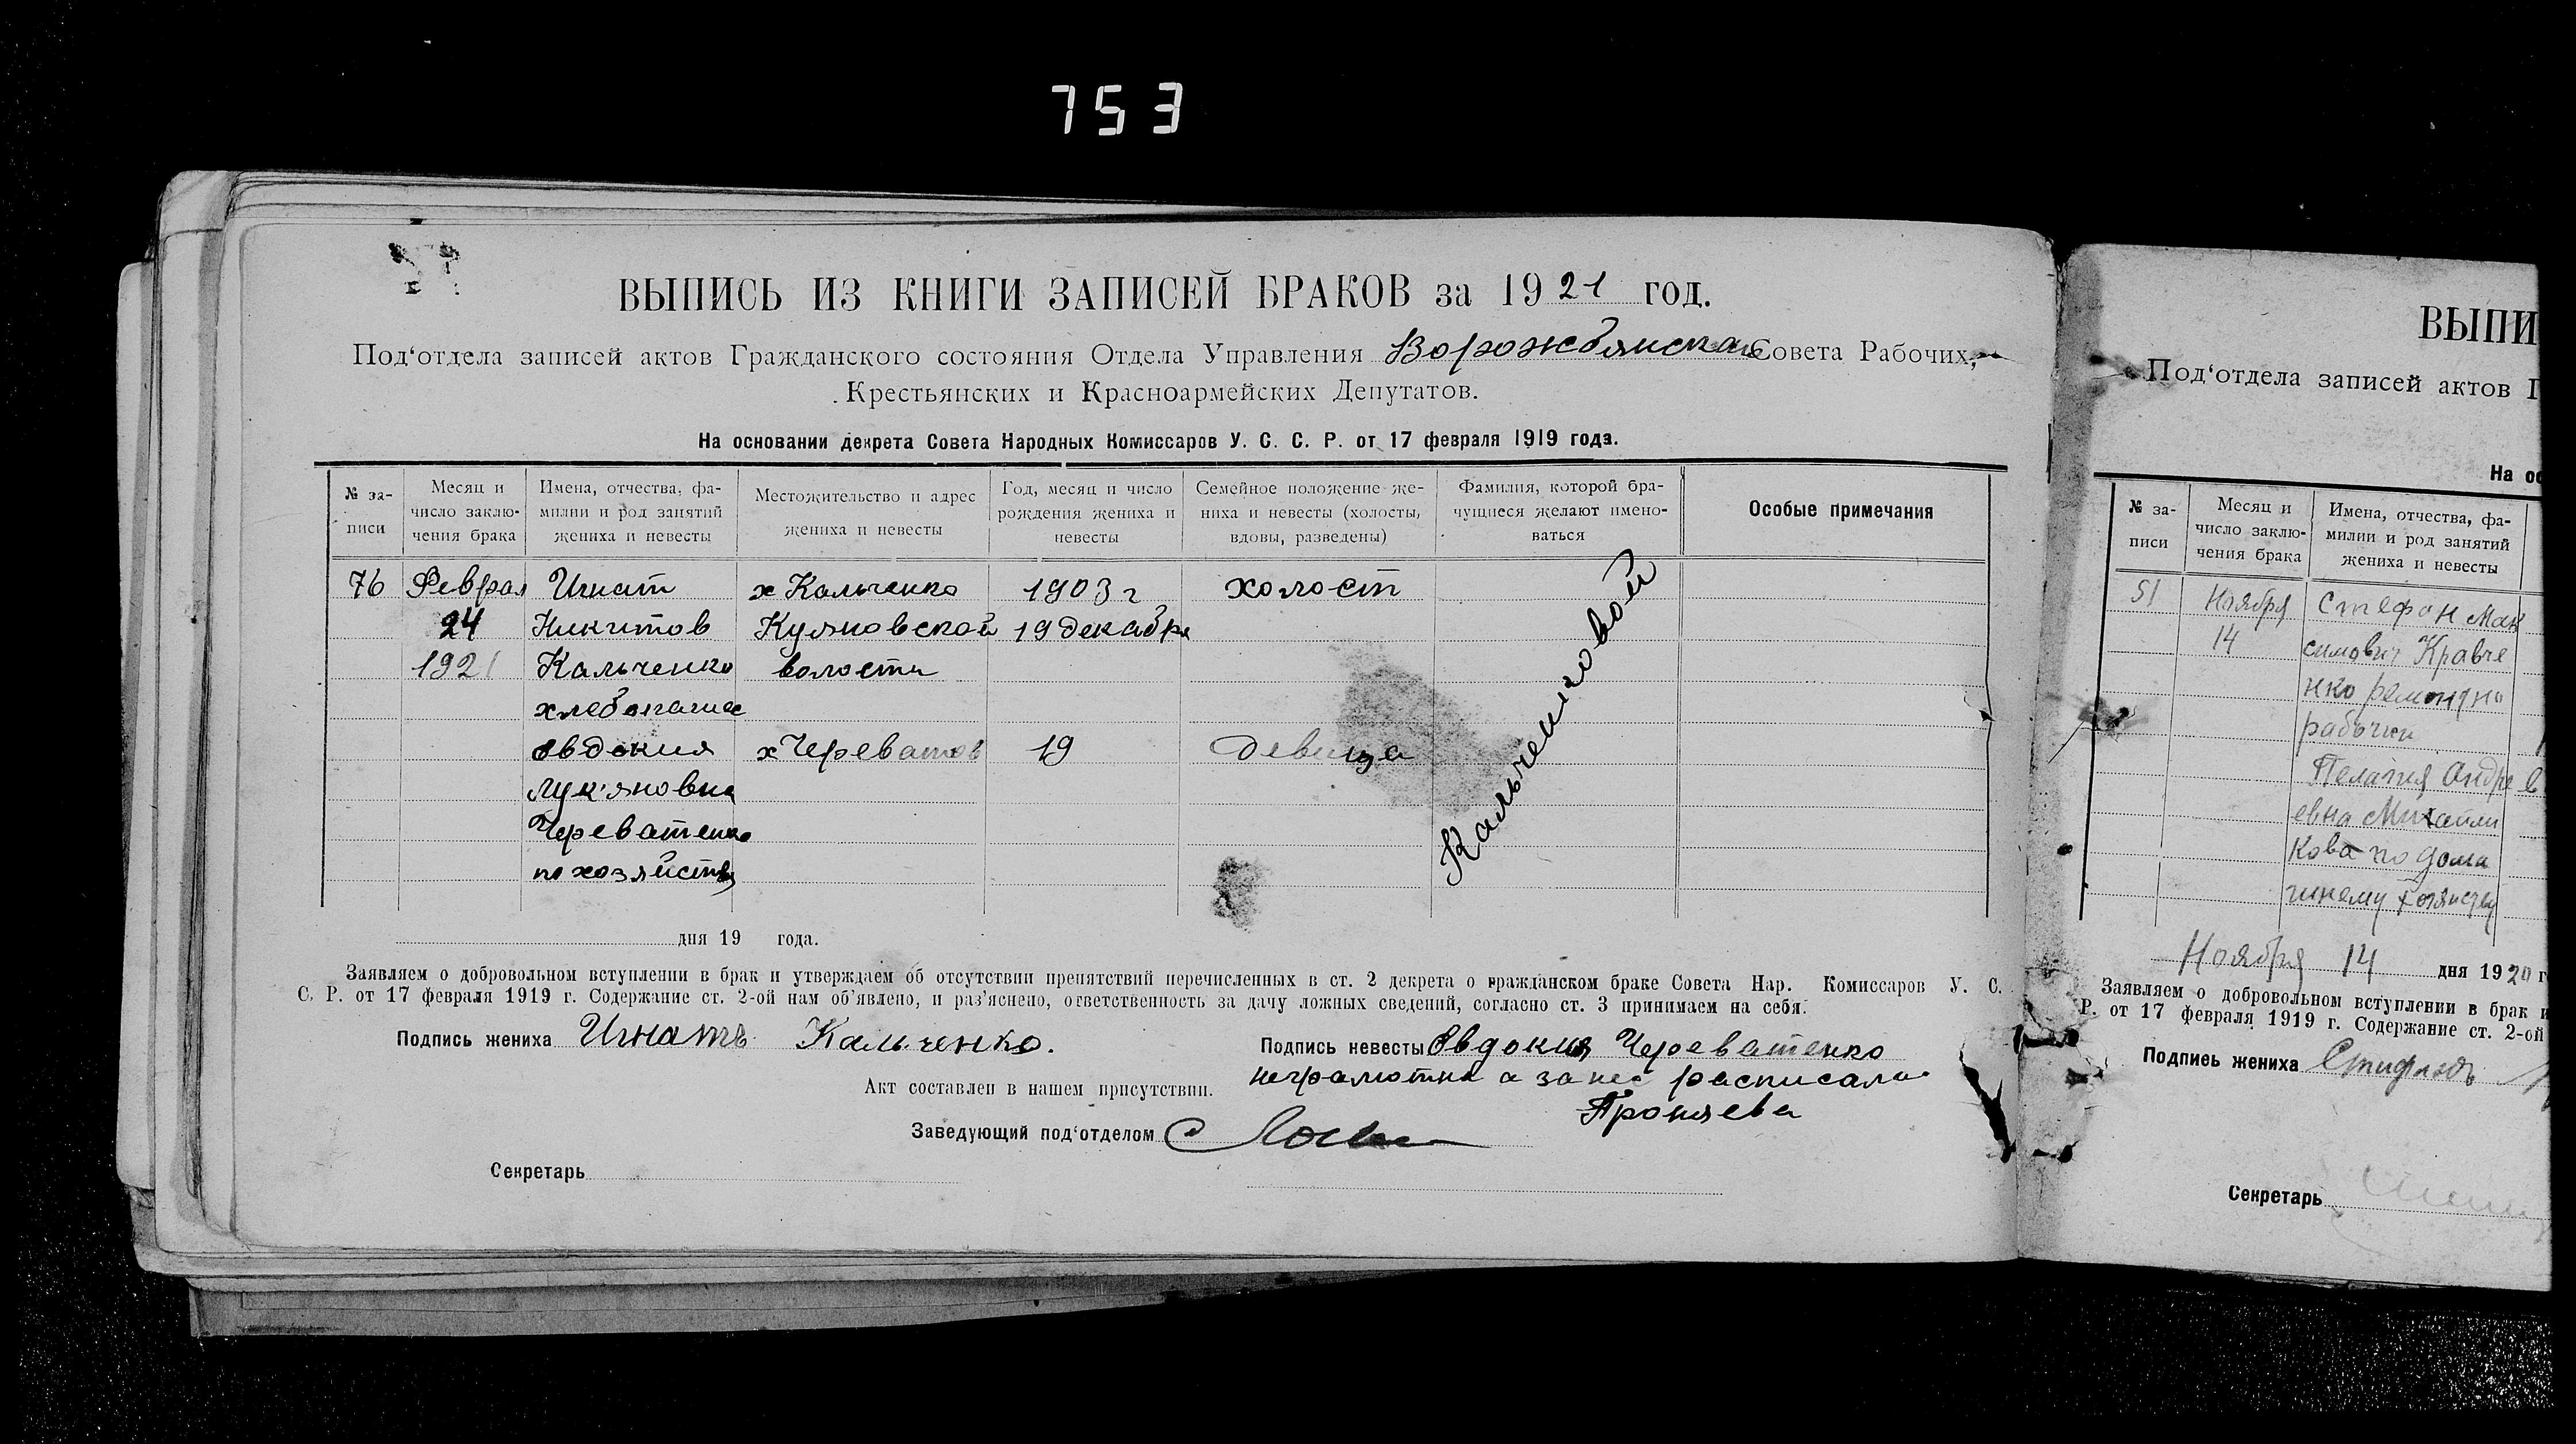 753
ВЫПИСЬ ИЗ КНИГИ ЗАПИСЕЙ БРАКОВ за 1921 год.
Под‘отдела записей актов Гражданского состояния Отдела Управления Ворожбянская Совета Рабочих,
Крестьянских и Красноармейских Депутатов.
На основании декрета Совета Народных Комиссаров У. С. С. Р. от 17 февраля 1919 года.
№ за-
писи
Месяц и
число заклю-
чения брака
Имена, отчества, фа-
милии и род занятий
жениха и невесты
Местожительство и адрес
жениха и невесты
Год, месяц и число
рождения жениха и
невесты
Семейное положение же-
ниха и невесты (холосты,
вдовы, разведены)
Фамилия, которой бра-
чущиеся желают имено-
ваться
Особые примечания
76 Феврал Игнат х Кальченко 1903 г холост
24 Никитов Куяновской 19 декабря
1921 Кальченко волости
хлебопашес
Евдокия х Череватов 19 девица
Лук'яновна
Череватенко
по хозяйству
Кальченковой
дня 19 года.
Заявляем о добровольном вступлении в брак и утверждаем об отсутствии препятствий перечисленных в ст. 2 декрета о гражданском браке Совета Нар. Комиссаров У. С.
С. Р. от 17 февраля 1919 г. Содержание ст. 2-ой нам об’явлено, и раз’яснено, ответственность за дачу ложных сведений, согласно ст. 3 принимаем на себя.
Подпись жениха Игнатъ Кальченко.
Подпись невесты Евдокия Череватенко
неграмотна а за нее расписала
Акт составлен в нашем присутствии.
Заведующий под‘отделом
Секретарь
ВЫПИ
Под‘отдела записей актов Г
На ос
№ за-
писи
Месяц и
число заклю-
чения брака
Имена, отчества, фа-
милии и род занятий
жениха и невесты
51 Ноября Стефан Мак
14 симович Кравче
нко ремонтно
рабочий
Пелагия Андре
евна Михайли
кова по дома
шнему хозяйству
Ноября 14 дня 1920 г
Заявляем о добровольном вступлении в брак и
Р. от 17 февраля 1919 г. Содержание ст. 2-ой
Подпись жениха
Секретарь